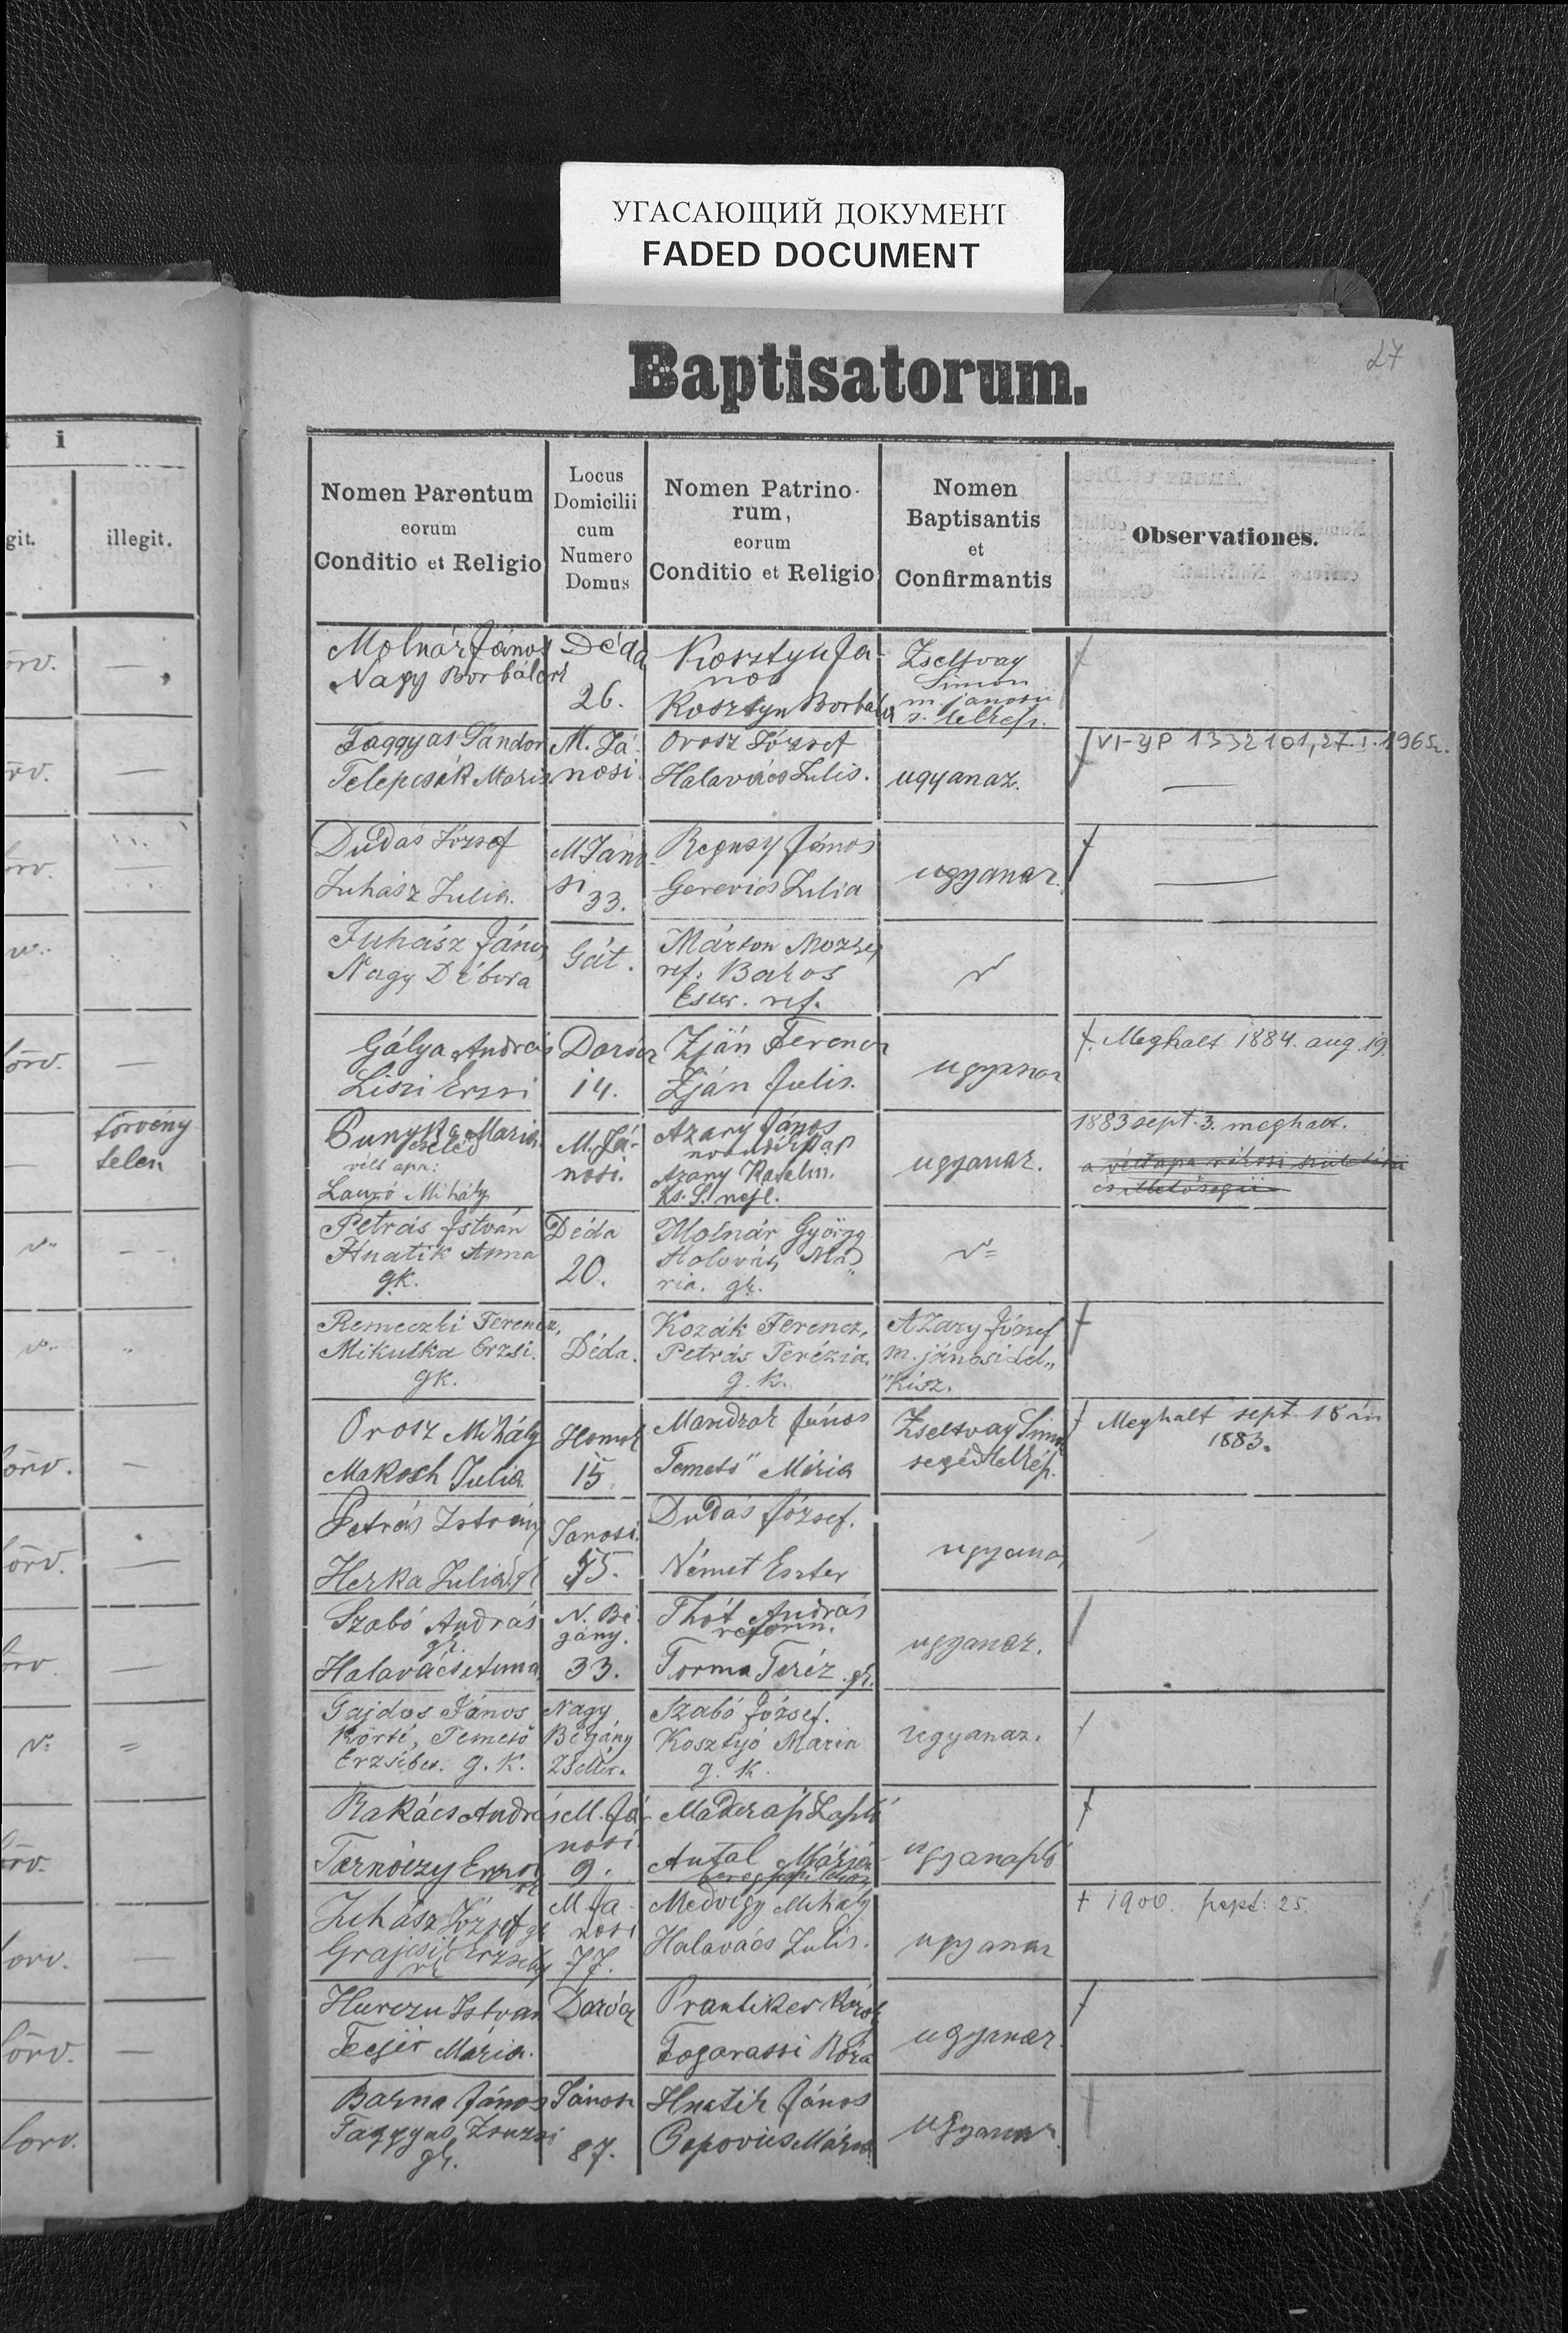 УГАСАЮЩИЙ ДОКУМЕНТ
FADED DOCUMENT
Baptisatorum.
27
i
git.
illegit.
Nomen Parentum
eorum
Conditio et Religio
Locus
Domicilii
cum
Numero
Domus
Nomen Patrino-
rum,
eorum
Conditio et Religio
Nomen
Baptisantis
et
Confirmantis
Observationes.
Molnár János
Nagy Borbála
Déda
26.
Kosztyu Já-
nos
Kosztyu Borbála
Zseltvay
Simon
m. jánosii
s. lelkész.
Faggyas Sándor
Telepcsák Maris
M. Já-
nosi
Orosz József
Halavács Julis.
ugyanaz.
VI-УР 1332101, 27.I.1965г.
Dudás József
Juhász Julia.
M Jáno-
si 33.
János
Gerevics Julia
ugyanaz.
Juhász János
Nagy Débora
Gát.
Márton
ref. Bakos
Eszt. ref.
Gálya András
Liszi Erzsi
Daróz
14.
Zján Ferencz
Zján Julis.
ugyanaz
†. Meghalt 1884. aug. 19.
törvény
telen
Punyka Mária
cseléd
vélt apa:
Lauró Mihály
M. Já-
nosi.
Azary János
Azary Katalin.
ugyanaz.
1883 sept. 3. meghalt.
Petrás István
Hnatik Anna
gk.
Déda
20.
Molnár György
Holovács Má-
ria. gk.
Remeczki Ferencz,
Mikulka Erzsi.
gk.
Déda.
Kozák Ferencz,
Petrás Terézia.
g. k.
Azary József
m. jánosi lel-
kész.
†
Orosz Mihály
Makosh Julia
Homok
15.
Mandzák János
Temető Mária
Zseltvay Simon
segédlelkész.
† Meghalt sept. 18 án
1883.
Petrás István
Herka Julia gk
Jánosi.
55.
Dudás József.
Német Eszter
ugyanaz
Szabó András
gk.
Halavács Anna
N. Bé-
gány.
33.
Thót András
reform.
Torma Teréz gk.
ugyanaz.
Gajdos János
Körté, Temető
Erzsébet. g. k.
Nagy
Bégány
Zsellér.
Szabó József.
Kosztyó Mária
g. k.
ugyanaz.
Rakács András
Tarnóczy Erzsi
M. Já-
nosi.
9.
Antal Mária
†
Juhász József gk
Grajcsik Erzsébet
M. Já-
nosi
77.
Medvigy Mihály
Halavács Julis.
ugyanaz
† 1900. sept: 25.
Hurczu István
Fecjér Mária.
Daróz
Prantiker Károly
Fogarassi Róza
ugyanaz.
†
Barna János
Faggyas Zsuzsi
gk.
Jánosi
87.
Hnatik János
Popovics Mária
ugyanaz
†